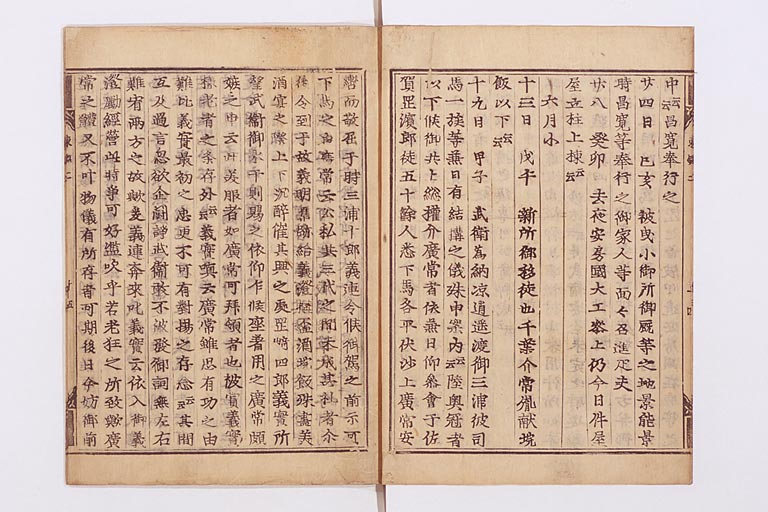 申云云昌寛奉行之
廿四日 己亥 被曳小御所御厩等之地景能景
時昌寛等奉行之御家人等面々召進疋夫云云
廿八日 癸卯 去夜安房國大工参上仍今日件屋
屋立柱上棟云云
六月小
十三日 戊午 新所御移徙也千葉介常胤献垸
飯以下云云
十九日 甲子 武衛為納凉逍遥渡御三浦彼司
馬一族等兼日有結搆之儀殊申案内云云陸奥冠者
以下候御共上総權介廣常者依兼日仰參會于佐
賀岡濱郎徒五十餘人悉下馬各平伏沙上廣常安
轡而敬屈于時三浦十郎義連令候御駕之前示可
下馬之由廣常云公私共三代之間未成其礼者介
後令到于故義明舊跡給義澄搆盃酒垸飯殊盡美
酒宴之際上下沉醉催其興之処岡崎四郎義實所
望武衛御水干則賜之依仰乍候座著用之廣常頗
嫉之申云此美服者如廣常可拜領者也被賞義實
樣老者之条存外云云義實嗔云廣常雖思有功之由
難比義實最初之忠更不可有對揚之存念云云其間
互及過言忽欲企闘諍武衛敢不被發御詞無左右
難宥兩方之故歟爰義連奔來叱義實云依入御義
澄勵經營此時爭可好濫吹乎若老狂之所致歟廣
常之體又不叶物儀有所存者可期後日今妨御前